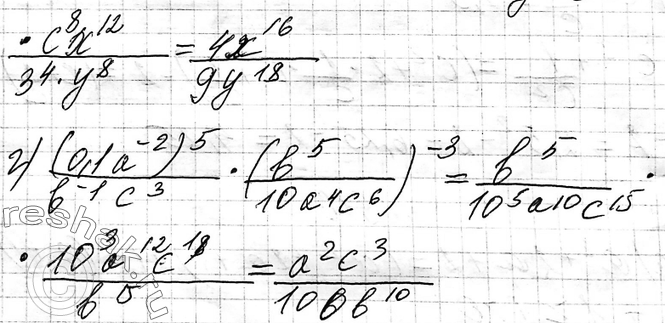 · c⁸x¹² / 3⁴·y⁸ = 4x¹⁶ / 9y¹⁸
г) (0,1a⁻²)⁵ / b⁻¹c³ · (b⁵ / 10a⁴c⁶)⁻³ = b⁵ / 10⁵a¹⁰c¹⁵ ·
· 10³a¹²c¹⁸ / b¹⁵ = a²c³ / 100b¹⁰
reshak.ru